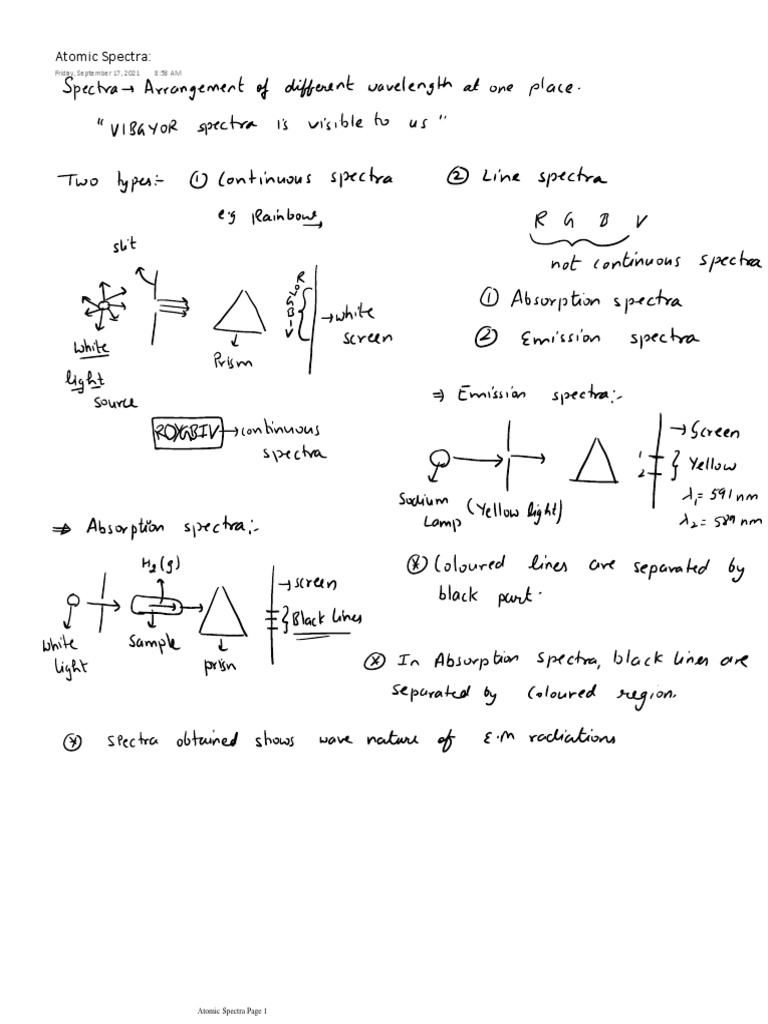 Atomic Spectra:
Friday, September 17, 2021 8:58 AM
Spectra → Arrangement of different wavelength at one place.
"VIBGYOR spectra is visible to us"
Two types:- ① Continuous spectra
e.g Rainbow
② Line spectra
R G B V
not continuous spectra
① Absorption spectra
② Emission spectra
slit
White
light
source
Prism
R
O
Y
G
B
I
V
→ white
screen
ROYGBIV → continuous
spectra
⇒ Emission spectra:-
Sodium
Lamp
(Yellow light)
1
2
→ Screen
Yellow
λ₁ = 591 nm
λ₂ = 589 nm
⊛ Coloured lines are separated by
black part.
⇒ Absorption spectra:-
H₂(g)
White
light
Sample
prism
→ screen
Black Lines
⊛ In Absorption spectra, black lines are
separated by coloured region.
⊛ Spectra obtained shows wave nature of E.M radiations
Atomic Spectra Page 1